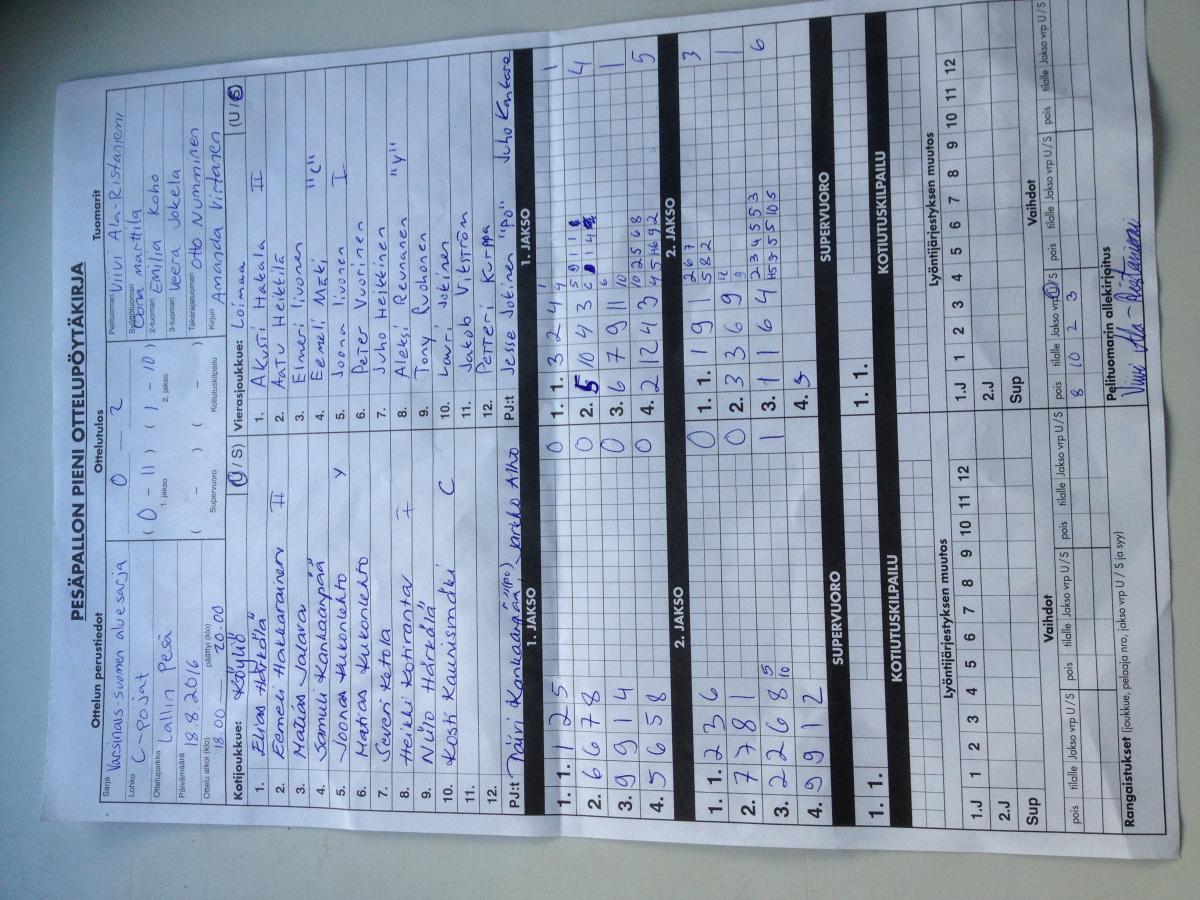 PESÄPALLON PIENI OTTELUPÖYTÄKIRJA
Ottelun perustiedot Ottelutulos Tuomarit
Sarja Varsinais-suomen aluesarja 0 2 Pelituomari Viivi Ala-Ristaniemi
Lohko C-pojat (0 - 11) (1 - 10) Syöttötuomari Marttila
1. jakso 2. jakso
Ottelupaikka Lallin Pesä 2-tuomari Emilia Koho
Päivämäärä 18.8.2016 ( - ) ( - ) 3-tuomari Veera Jokela
Supervuoro Kotiutuskilpailu
Ottelu alkoi (klo) 18.00 päättyi (klo) 20.00 Takarajatuomari Otto Numminen
Kirjuri Amanda Virtanen
Kotijoukkue: Köyliö (U / S) Vierasjoukkue: Loimaa (U / S)
1. Elias Härkälä 1. Akusti Hakala II
2. Eemeli Hakkarainen II 2. Aatu Heikkilä
3. Matias Jalava 3. Elmeri Iivonen
4. Samuli Kankaanpää 4. Eemeli Mäki "C"
5. Joonas Kukonlehto Y 5. Joona Iivonen I
6. Matias Kukonlehto 6. Peter Vuorinen
7. Severi Ketola 7. Juho Heikkinen
8. Heikki Kotiranta I 8. Aleksi Reunanen "Y"
9. Niilo Härkälä 9. Tony Ruohonen
10. Kosti Kaunismäki C 10. Lauri Jokinen
11. 11. Jakob Vikström
12. 12. Petteri Kurppa
PJ:t Päivi Kankaanpää "(po)", Jarkko Alho PJ:t Jesse Jokinen "po" Juho Kankare
1. JAKSO 1. JAKSO
1. 1. 1 2 5 0 1. 1. 3 2 4 1
2. 6 6 7 8 0 2. 5 10 4 3 4
3. 9 9 1 4 0 3. 6 7 9 11 1
4. 5 6 5 8 0 4. 2 12 4 3 5
2. JAKSO 2. JAKSO
1. 1. 2 3 6 0 1. 1. 1 9 1 3
2. 7 7 8 1 0 2. 3 3 6 9 1
3. 2 2 6 8 5 10 1 3. 1 1 6 4 6
4. 9 9 1 2 4. 5
SUPERVUORO SUPERVUORO
1. 1. 1. 1.
KOTIUTUSKILPAILU KOTIUTUSKILPAILU
Lyöntijärjestyksen muutos Lyöntijärjestyksen muutos
1.J 1 2 3 4 5 6 7 8 9 10 11 12 1.J 1 2 3 4 5 6 7 8 9 10 11 12
2.J 2.J
Sup Sup
Vaihdot Vaihdot
pois tilalle Jakso vrp U / S pois tilalle Jakso vrp U / S pois tilalle Jakso vrp U / S pois tilalle Jakso vrp U / S pois tilalle Jakso vrp U / S pois tilalle Jakso vrp U / S
8 10 2 3
Rangaistukset (joukkue, pelaaja nro, jakso vrp U / S ja syy) Pelituomarin allekirjoitus
Viivi Ala-Ristaniemi